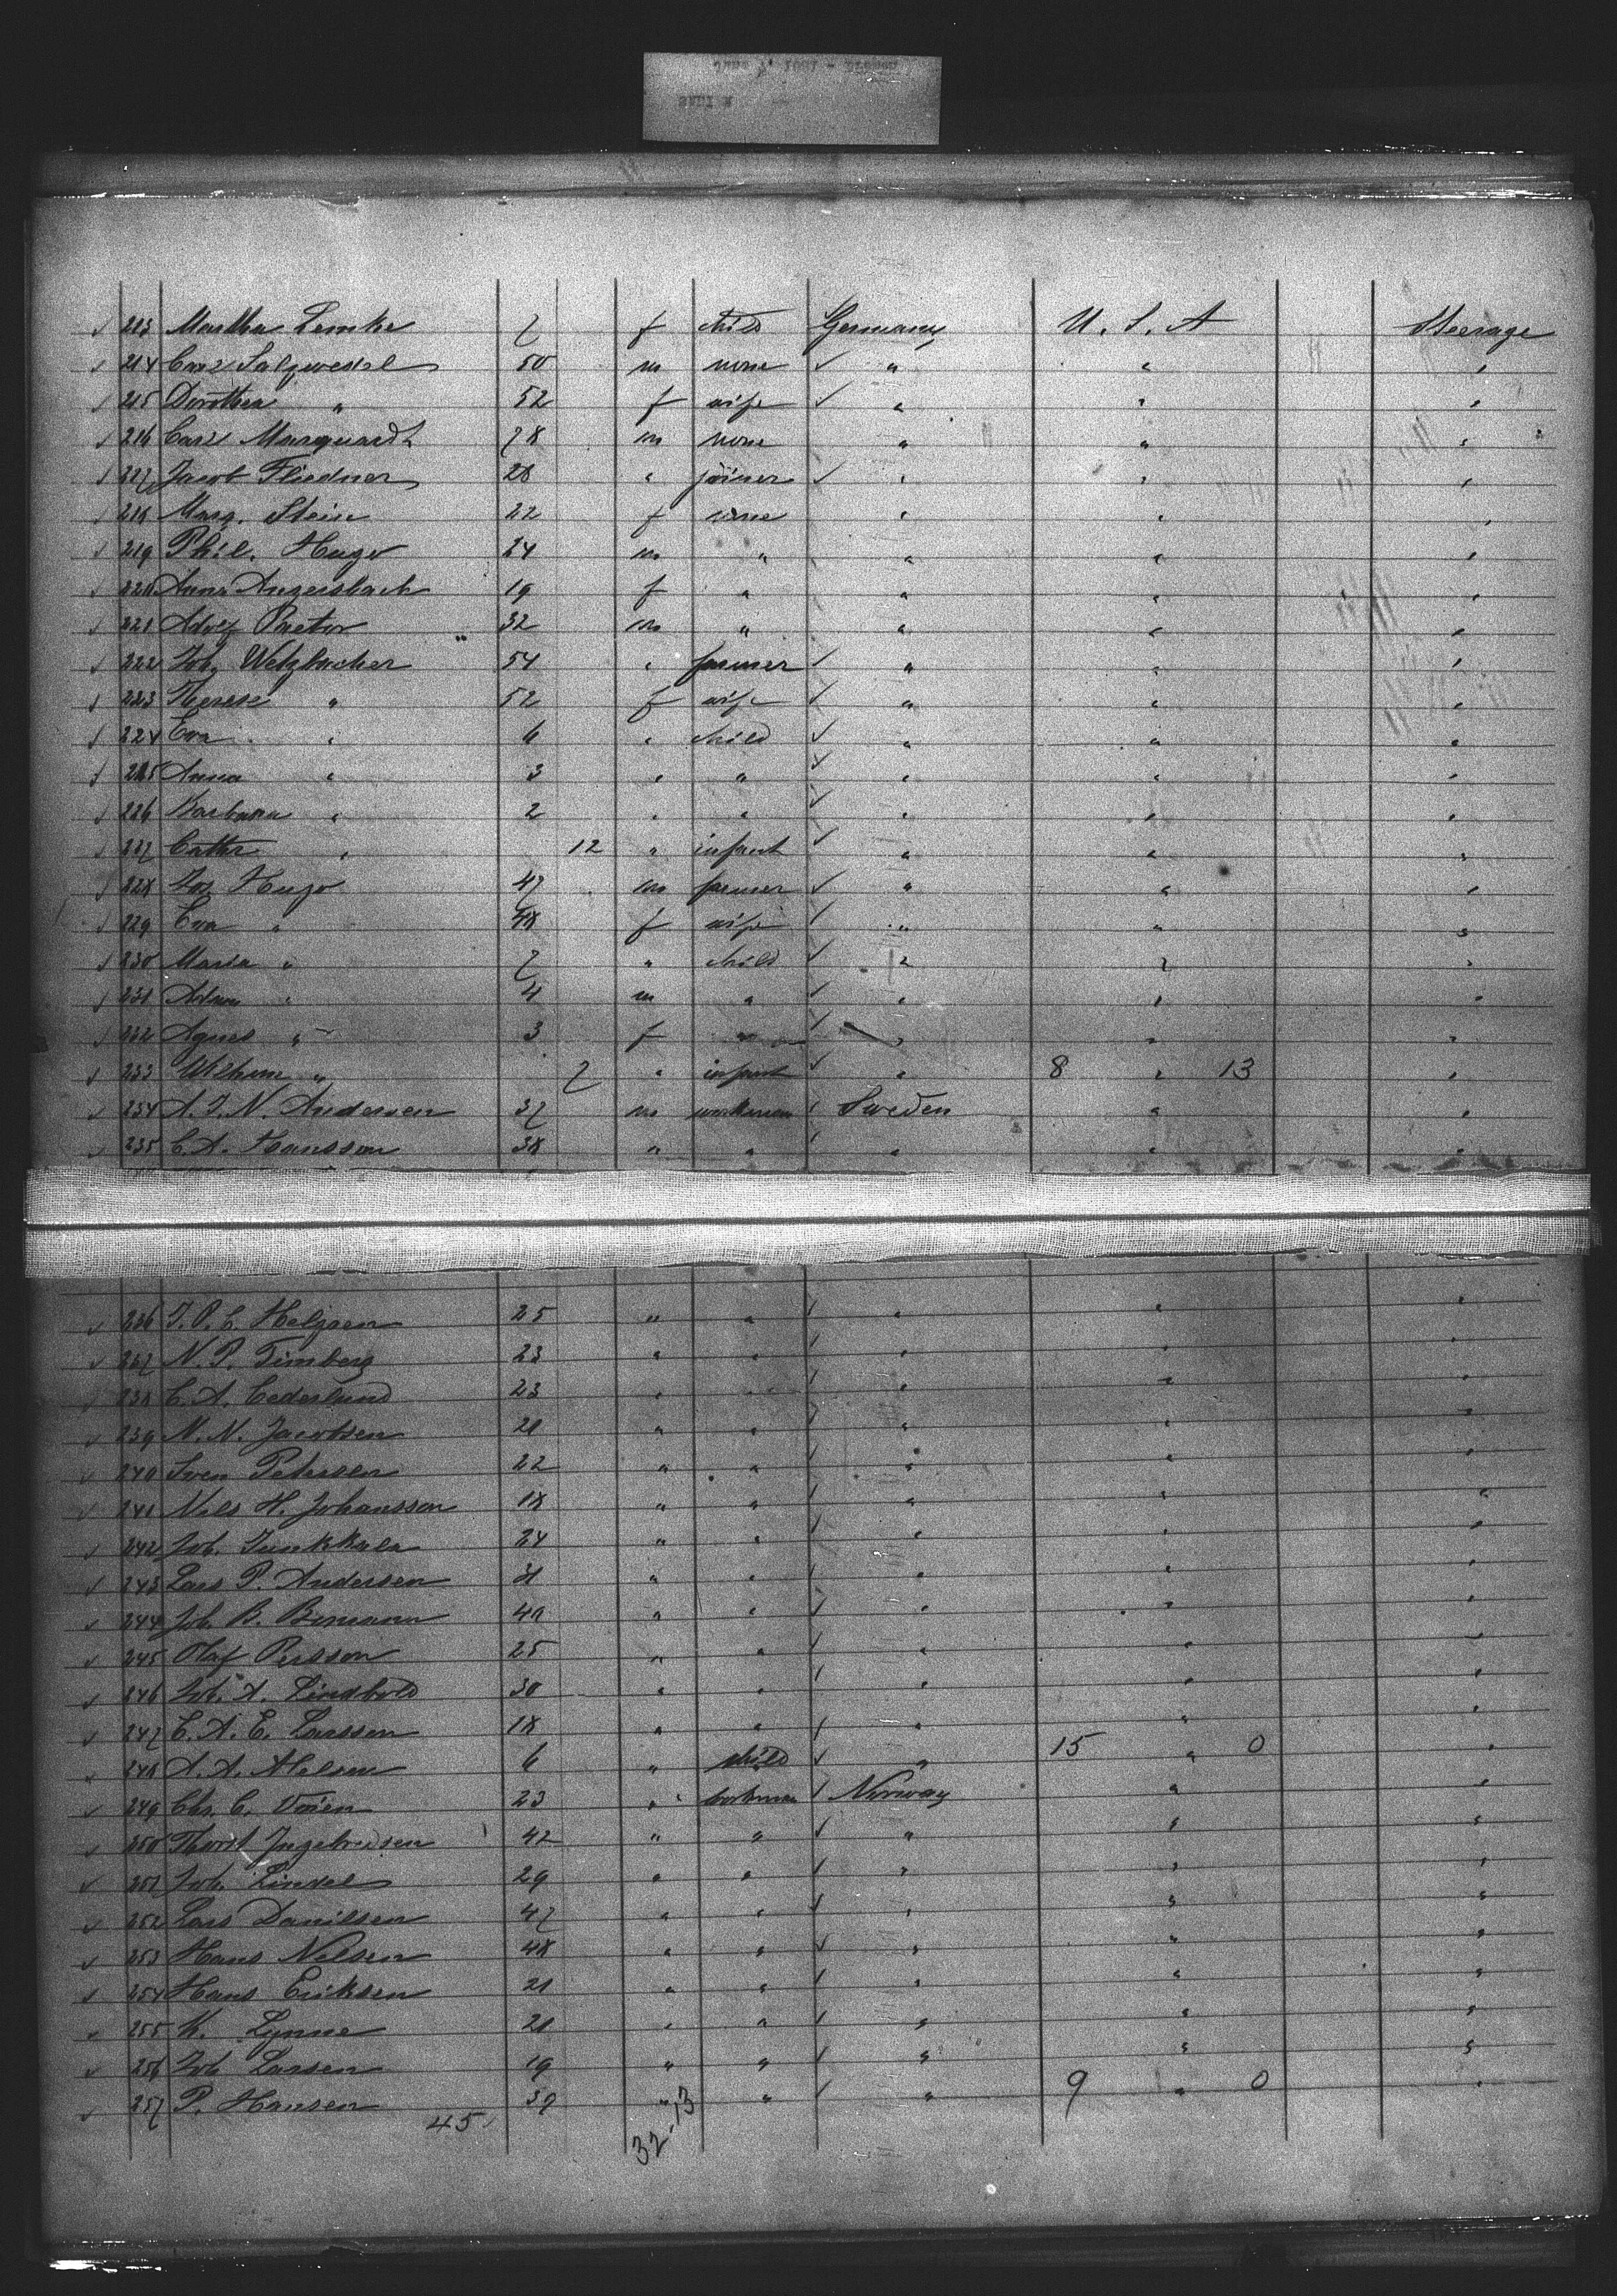 213 Martha Lemke 7 f child Germany U. S. A Steerage
214 Carl Salzwedel 50 m none " " "
215 Dorothea " 52 f wife " " "
216 Carl Marquardt 78 m none " " "
217 Jacob Fliedner 28 " joiner " " "
218 Marg. Stein 22 f none " " "
219 Phil. Hugo 24 m " " " "
220 Anna Angersbach 19 f " " " "
221 Adolf Pretor 32 m " " " "
222 Joh. Welzbacher 54 " farmer " " "
223 Therese " 52 f wife " " "
224 Eva " 6 " child " " "
225 Anna " 3 " " " " "
226 Barbara " 2 " " " " "
227 Cathr " 12 " infant " " "
228 Jos Hugo 47 m farmer " " "
229 Eva " 48 f wife " " "
230 Maria " 7 " child " " "
231 Adam " 4 m " " " "
232 Agnes " 3 f " " " "
233 Wilhem " 7 " infant " 8 " 13 "
234 A. J. N. Andersen 37 m workman Sweden " "
235 C. A. Hansson 38 " " " " "
236 J. P. C. Helgoen 25 " " " " "
237 N. P. Timberg 23 " " " " "
238 C. A. Cederlund 23 " " " " "
239 N. N. Jacobsen 21 " " " " "
240 Sven Petersen 22 " " " " "
241 Nels H. Johansson 18 " " " " "
242 Joh. Junkkala 24 " " " " "
243 Lars P. Andersen 31 " " " " "
244 Joh. B. 40 " " " " "
245 Olaf Persson 25 " " " " "
246 Joh. A. Lindbold 30 " " " " "
247 C. A. E. Larsson 18 " " " " "
248 A. A. Nelson 6 " child " 15 " 0 "
249 Chr. C. Voien 23 " workman Norway " "
250 Thorst Ingebredsen 42 " " " " "
251 Joh. Lindal 29 " " " " "
252 Lars Danilsen 47 " " " " "
253 Hans Nelsen 48 " " " " "
254 Hans Eriksen 21 " " " " "
255 K. Lynne 21 " " " " "
256 Joh Larsen 19 " " " " "
257 P. Hansen 39 " " " 9 " 0 "
45
32-13